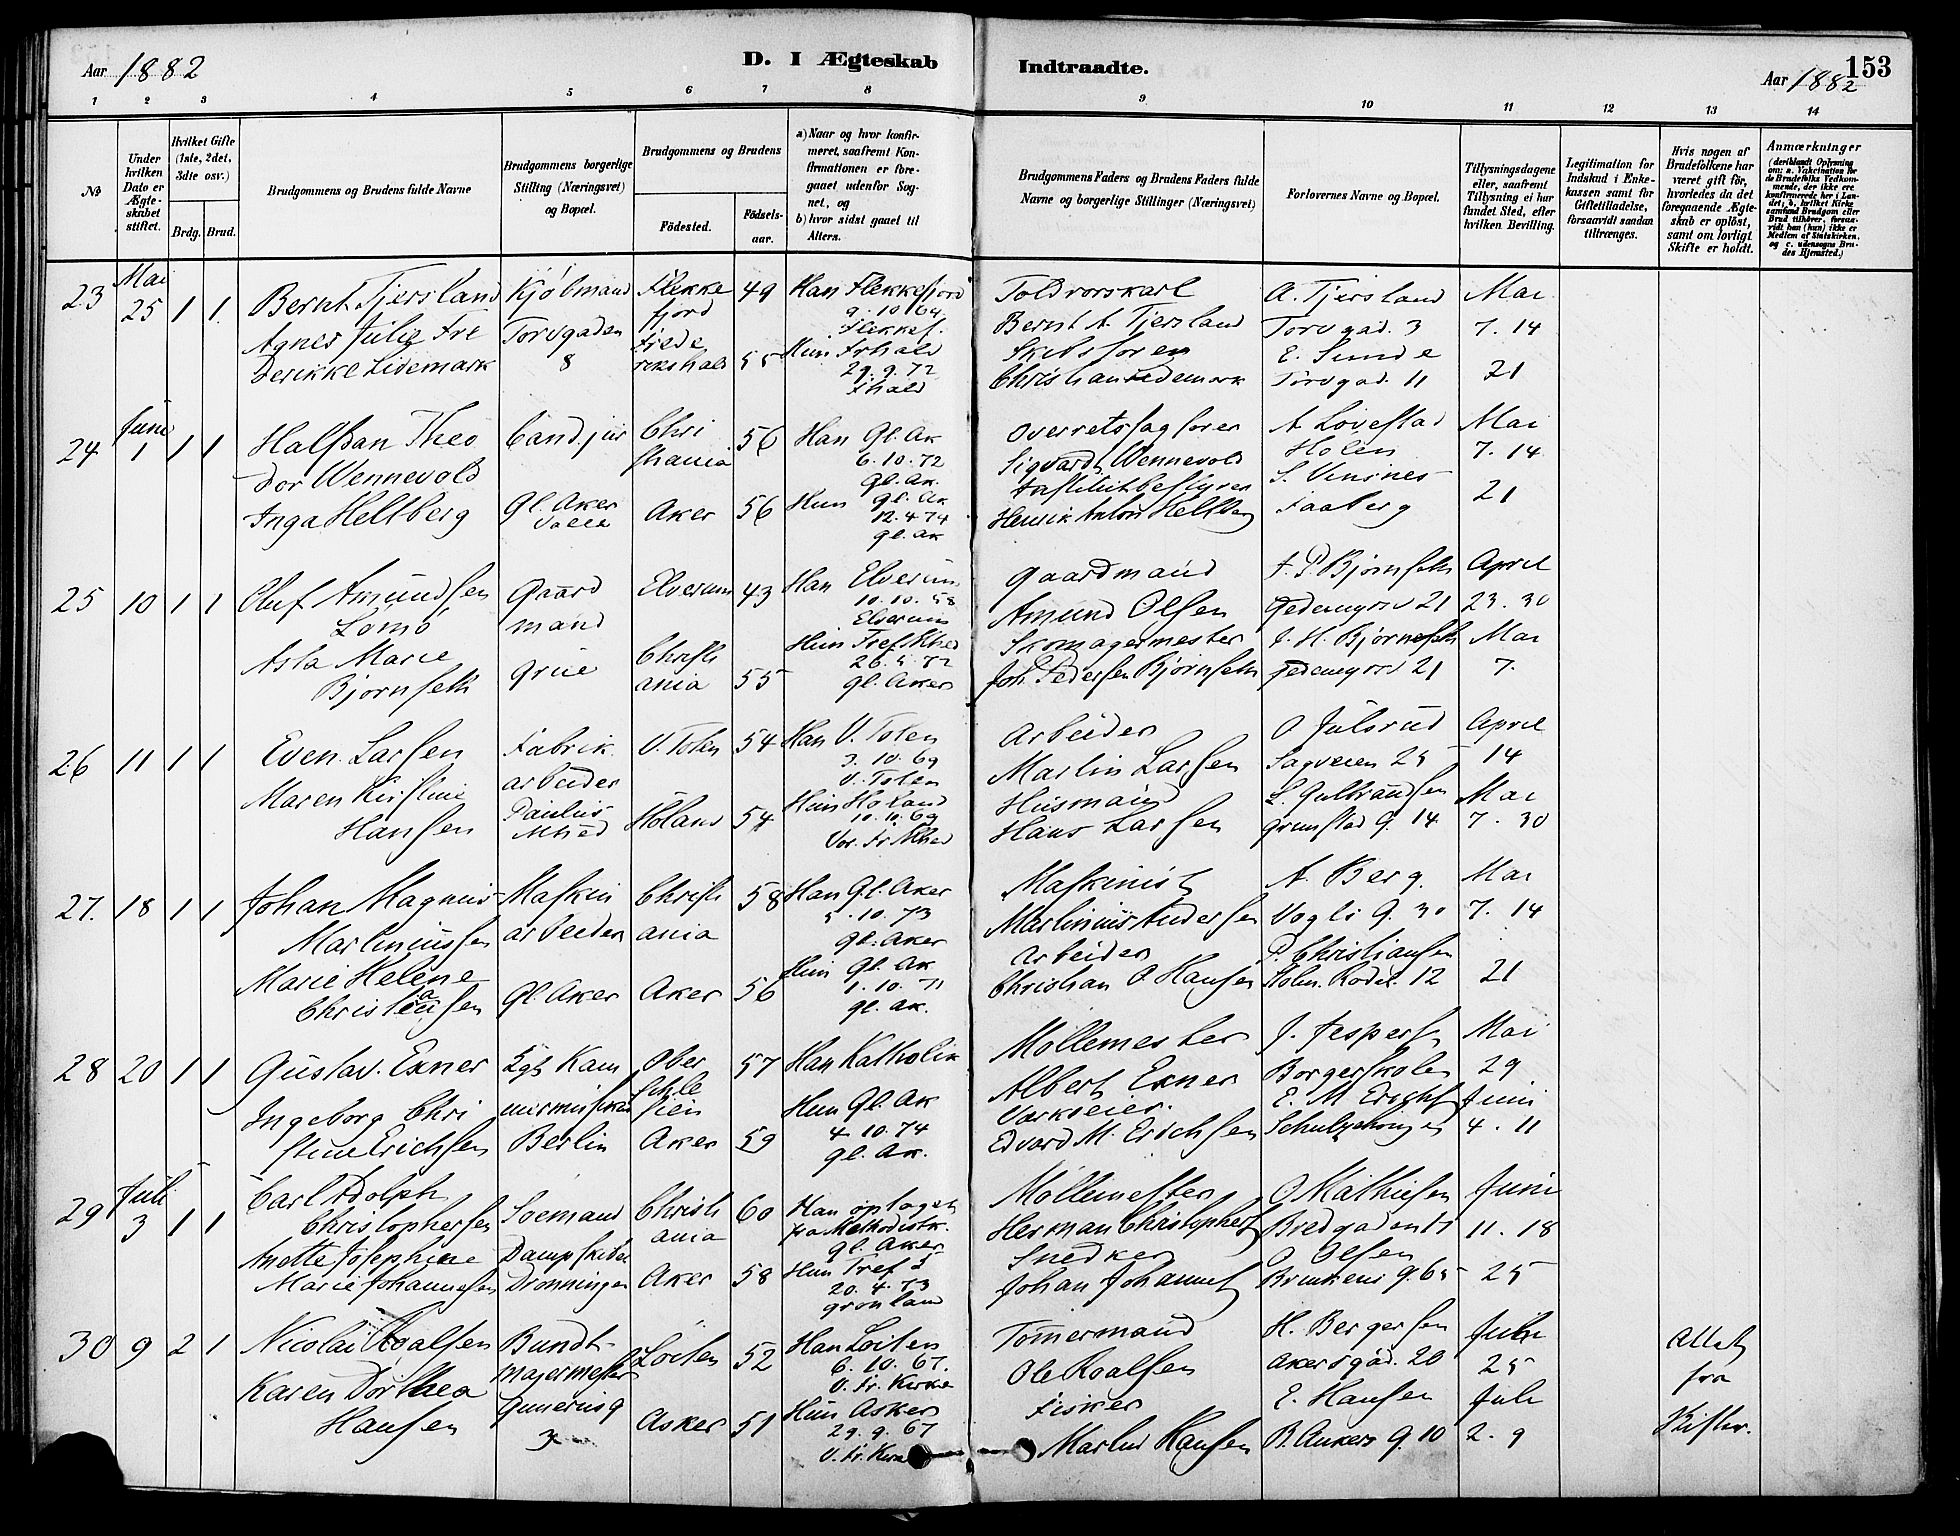 Aar 1882
D. I Ægteskab Indtraadte.
Aar 1882
153
1 2 3 4 5 6 7 8 9 10 11 12 13 14
No
Under hvilken Dato er Ægteskabet stiftet.
Hvilket Gifte (1ste, 2det, 3die osv.)
Brdg. Brud.
Brudgommens og Brudens fulde Navne
Brudgommens borgerlige Stilling (Næringsvei) og Bopæl.
Brudgommens og Brudens
Fødested.
Fødselsaar.
a) Naar og hvor konfirmeret, saafremt Konfirmationen er foregaaet udenfor Sognet, og
b) hvor sidst gaaet til Alters.
Brudgommens Faders og Brudens Faders fulde Navne og borgerlige Stillinger (Næringsvei)
Forlovernes Navne og Bopæl.
Tillysningsdagene eller, saafremt Tillysning ei har fundet Sted, efter hvilken Bevilling.
Legitimation for Indskud i Enkekassen samt for Giftetilladelse, forsaavidt saadan tiltrænges.
Hvis nogen af Brudefolkene har været gift før, hvorledes da det foregaaende Ægteskab er opløst, samt om lovligt Skifte er holdt.
Anmærkninger
(deriblandt Oplysning om: a. Vakcination for de Brudefolks Vedkommende, der ikke ere konfirmerede her i Landet; b. hvilket Kirkesamfund Brudgom eller Brud tilhører, forsaavidt han (hun) ikke er Medlem af Statskirken, og c. udensogns Brudes Hjemsted.)
23
Mai
25
1 1
Bernt Tjersland
Agnes Julie Fre
derikke Lidemark
Kjøbmand
Torvgaden
8
Flekke
fjord
Frede
rikshald
49
55
Han Flekkefjord
9.10 64
Flekkef.
Hun Frhald
29.9.72
Fhald
Toldvorskarl
Bernt A. Tjersland
Skibsfører
Christian Lidemark
A. Tjersland
Torvgad. 3
E. Sunde
Torvgad. 11
Mai
7. 14
21
24
Juni
1
1 1
Halfdan Theo
dor Wennevold
Inga Heltberg
Cand. jur
Gl. Aker
Chri
stiania
Aker
56
56
Han Gl. Ak
6.10.72
Gl. Ak.
Hun Gl. Ak
12.4 74
Gl. Ak
Overretssagfører
Sigvardt Wennevold
Institutbestyrer
Henrik Anton Heltberg
A Løvestad
Holen
S. Vinsnes
Faaberg
Mai
7. 14
21
25
10
1 1
Oluf Amundsen
Lømo
Asta Marie
Bjørnseth
Gaard
mand
Grue
Elverum
Christi
ania
43
55
Han Elverum
10.10.58
Elverum
Hun Tref Khed
26.5.72
Gl. Aker
Gaardmand
Amund Olsen
Skomagermester
Joh. Pedersen Bjørnseth
J. P. Bjørnseth
Fredensgrsd 21
J. H. Bjørnseth
Fredensgrsd 21
April
23. 30
Mai
7.
26
11
1 1
Even Larsen
Maren Kirstine
Hansen
Fabrik
arbeider
Paulus
Mhed
V. Toten
Høland
54
54
Han V. Toten
3.10.69
V. Toten
Hun Høland
10.10.69
Vor. Fr Khed
Arbeider
Martin Larsen
Husmand
Hans Larsen
O Julsrud
Sagveien 25
L. Gulbrandsen
Grimstad G. 14
April
14
Mai
7. 30
27.
18
1 1
Johan Magnus
Martinussen
Marie Helene
Christiansen
Maskin
arbeider
Gl. Aker
Christi
ania
Aker
58
56
Han Gl. Aker
5.10.73
Gl. Aker
Hun Gl. Ak
1.10.71
Gl. Ak.
Maskinist
Martinius Andersen
Arbeider
Christian O Hansen
A. Berg.
Vogts G. 30
P. Christiansen
Holm. Rodel. 12
Mai
7. 14
21
28
20
1 1
Gustav. Exner
Ingeborg Chri
stine Erichsen
Kgl Kam
mermusiker
Berlin
Ober
Schle
sien
Aker
57
59
Han Katholik
Hun Gl. Ak
4.10.74
Gl. Ak.
Møllemester
Albert Exner
Værkseier.
Edvard M. Erichsen
J. Jespersen
Borgerskolen
E. M. Erichs
Mai
29
Juni
4. 11
29
Juli
3
1 1
Carl Adolph
Christophersen
Anette Josephine
Marie Johannesen
Søemand
Dampskibet
Dronningen
Christi
ania
Aker
60
58
Han optaget
fra Methodistk.
Gl. Aker
Hun Tref
20.4.73
Grønland
Møllemester
Herman Christophers
Snedker
Johan Johannes
O Mathiesen
Bredgaden
O Olsen
Brinkens G. 65
Juni
11. 18
25
30
9
2 1
Nicolai Roalsen
Karen Dorthea
Hansen
Bundt-
majermester
Gunerius g
3
Løiten
Asker
52
51
Han Løiten
6.10.67.
V. Fr. Kirke
Hun Asker
29.9.67
V. Fr. Kirke
Tømermand
Ole Roalsen
Fisker
Martin Hansen
H. Bergersen
Akersgad. 20
E. Hansen
B. Ankers G. 10
Juni
25
Juli
2. 9
Attest
fra
Skifter.